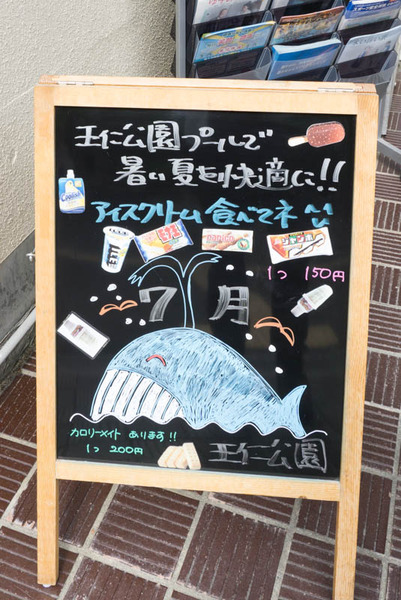 王仁公園プールで
暑い夏を快適に!!
アイスクリーム食べてネ
1つ 150円
7月
カロリーメイト あります!!
1つ 200円
王仁公園